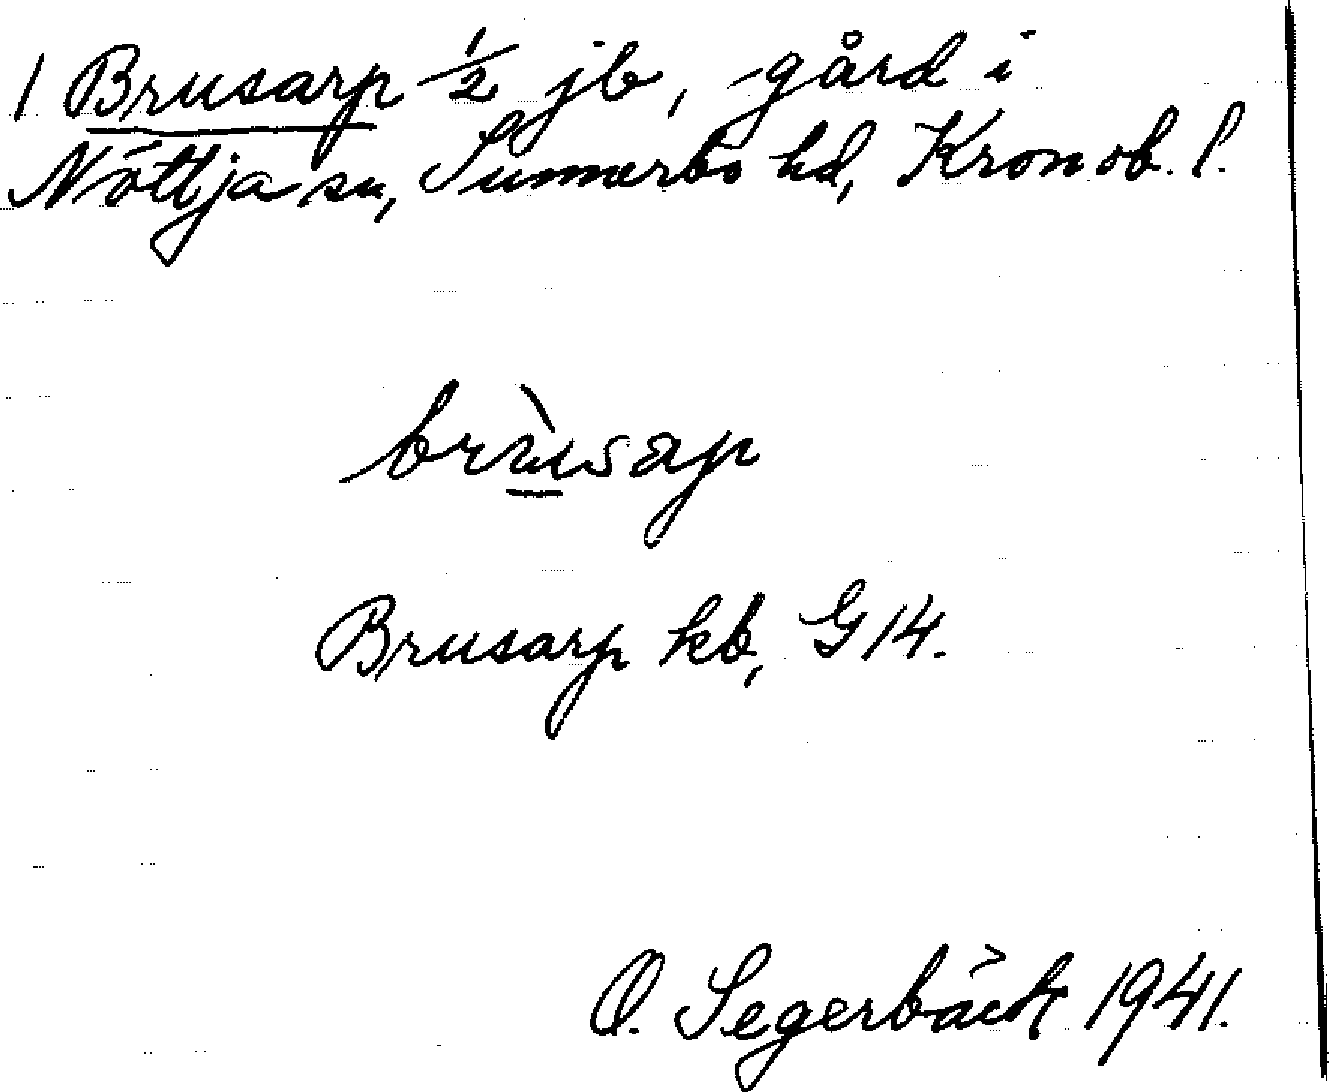 1 Brusarp ½ jb, gård i
Nöttja sn, Sunnerbo hd, Kronob. l.
brùsap
Brusarp kb, G 14.
O. Segerbäck 1941.